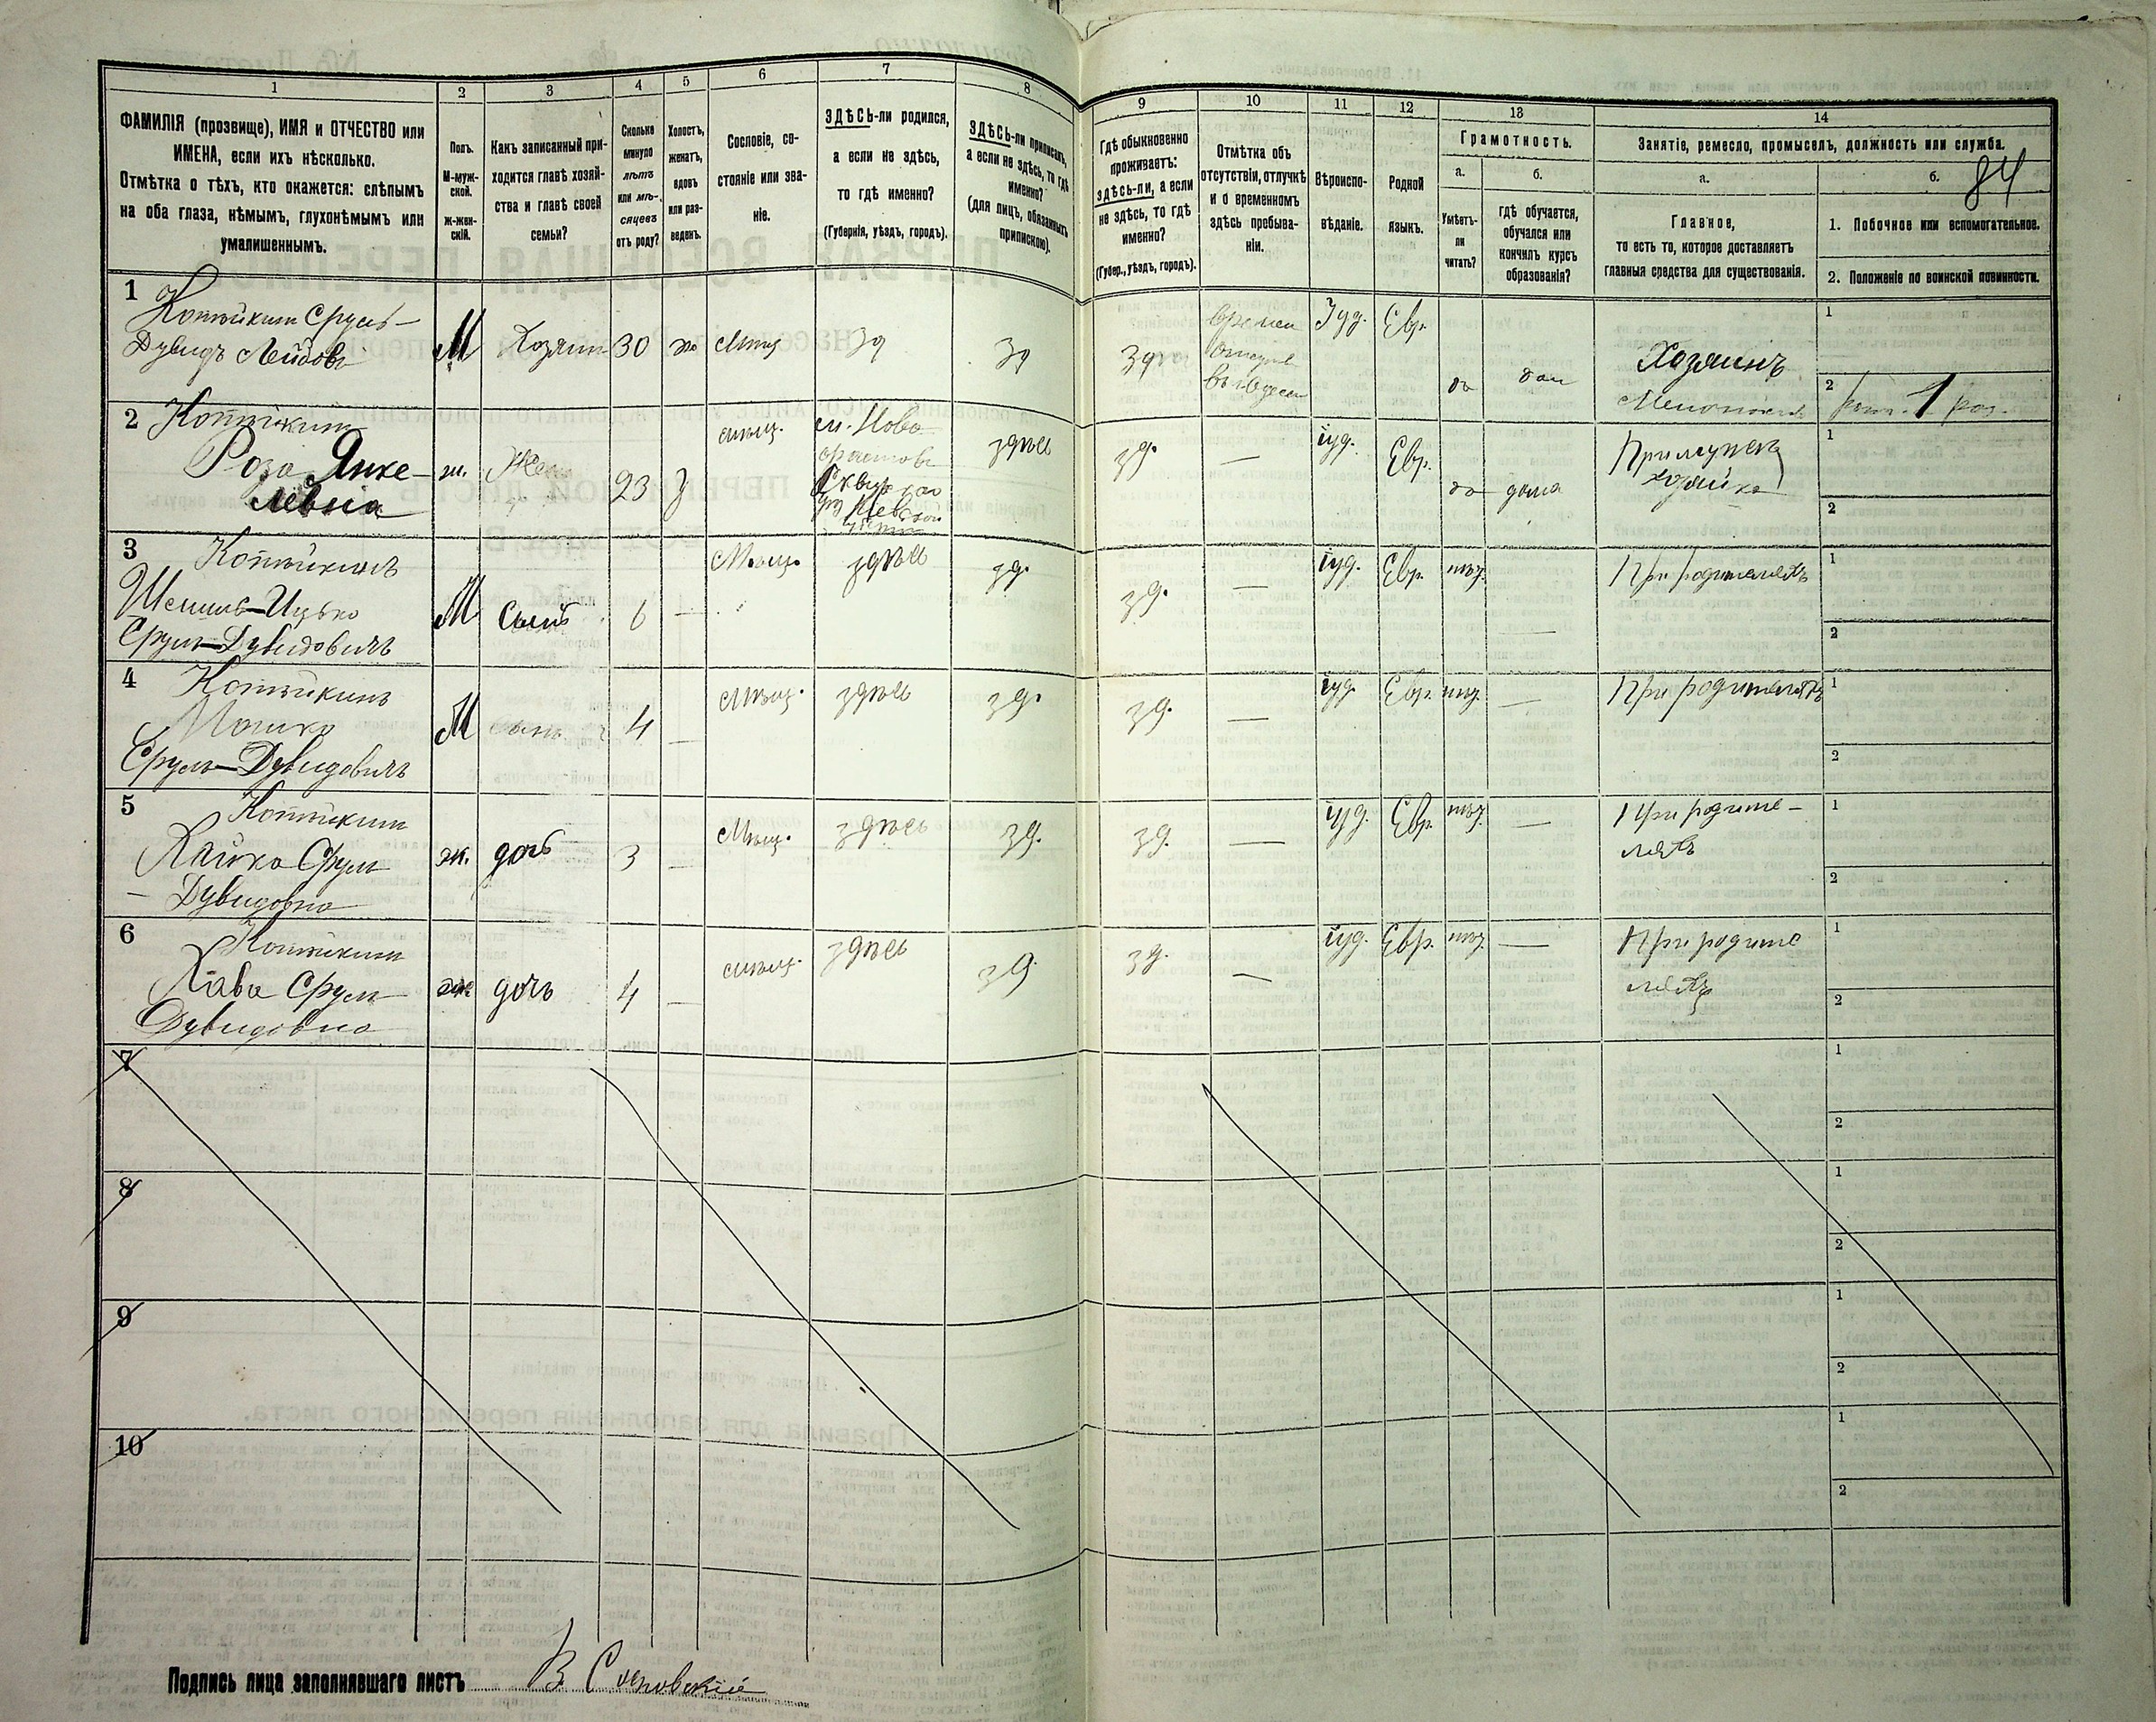 1 2 3 4 5 6 7 8 9 10 11 12 13 14
ФАМИЛІЯ (прозвище), ИМЯ и ОТЧЕСТВО или
ИМЕНА, если ихъ нѣсколько.
Отмѣтка о тѣхъ, кто окажется: слѣпымъ
на оба глаза, нѣмымъ, глухонѣмымъ или
умалишеннымъ.
Полъ.
М-муж-
ской.
ж-жен-
скій.
Какъ записанный при-
ходится главѣ хозяй-
ства и главѣ своей
семьи?
Сколько
минуло
лѣтъ
или мѣ-
сяцевъ
отъ роду?
Холостъ,
женатъ,
вдовъ
или раз-
веденъ.
Сословіе, со-
стояніе или зва-
ніе.
ЗДѢСЬ-ли родился,
а если не здѣсь,
то гдѣ именно?
(Губернія, уѣздъ, городъ).
ЗДѢСЬ-ли приписанъ,
а если не здѣсь, то гдѣ
именно?
(для лицъ, обязанныхъ
припискою).
Гдѣ обыкновенно
проживаетъ:
здѣсь-ли, а если
не здѣсь, то гдѣ
именно?
(Губер., уѣздъ, городъ).
Отмѣтка объ
отсутствіи, отлучкѣ
и о временномъ
здѣсь пребыва-
ніи.
Вѣроиспо-
вѣданіе.
Родной
языкъ.
Грамотность.
а.
Умѣетъ-
ли
читать?
б.
гдѣ обучается,
обучался или
кончилъ курсъ
образованія?
Занятіе, ремесло, промыселъ, должность или служба.
84
а.
Главное,
то есть то, которое доставляетъ
главныя средства для существованія.
б.
1. Побочное или вспомогательное.
2. Положеніе по воинской повинности.
1
Сруль-
Дувидъ
М Хозяинъ 30 зд зд зд Іуд. Евр. да
Хозяинъ
1
2 1
2
Роза Янке-
левна
ж. Жена 23 мѣщ. м. Ново
здѣсь зд. — іуд. Евр. да дома
хозяйка
1
2
3 Котейкинъ
Шемиль-Ицько
Сруль-Дувидовичъ
М Сынъ 6 — Мѣщ. здѣсь зд. зд. — іуд. Евр. — При родителяхъ
1
2
4 Котейкинъ
Мошко
Сруль-Дувидовичъ
М сынъ 4 — Мѣщ. здѣсь зд. зд. — іуд. Евр. — При родителяхъ
1
2
5
Хайка Срул
-Дувидовна
ж. дочь 3 — Мѣщ. здѣсь зд. зд. — іуд. Евр. — При родите-
ляхъ
1
2
6
Хава Сруль
Дувидовна
ж. дочь 4 — мѣщ. здѣсь зд. зд. — іуд. Евр. — При родите
ляхъ
1
2
7 1
2
8 1
2
9 1
2
10 1
2
Подпись лица заполнявшаго листъ В Сосновскій